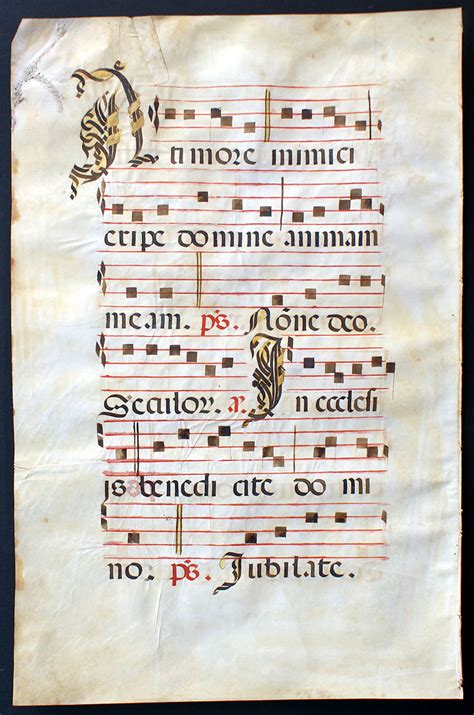 A timore inimici
eripe domine animam
meam. ps. Nōne deo.
Seculor. a. In ecclesi
is benedicite domi
no. ps. Jubilate.